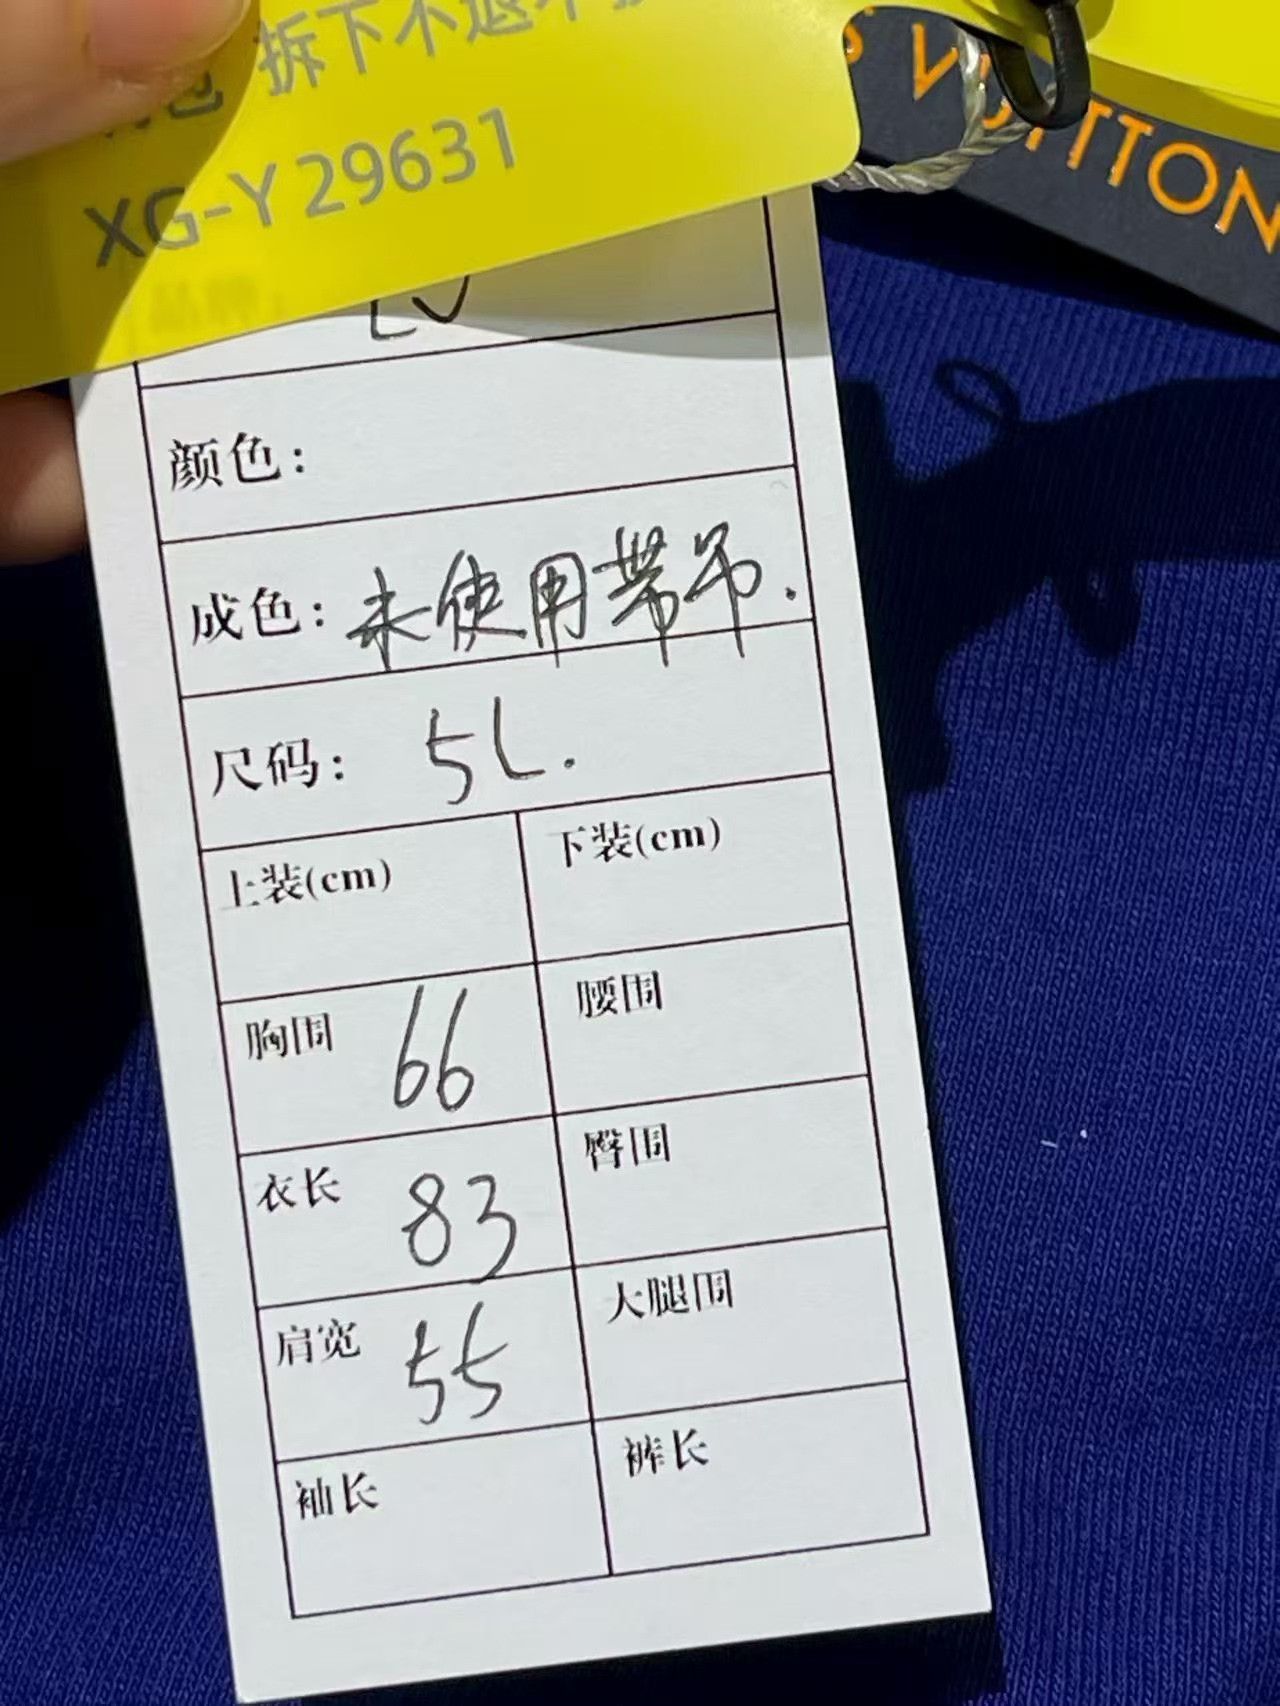 包 拆下不退不换
XG-Y29631
VUITTON
品牌:
LV
颜色:
成色: 未使用带吊.
尺码: 5L.
上装(cm) 下装(cm)
胸围 66 腰围
衣长 83 臀围
肩宽 55 大腿围
袖长 裤长